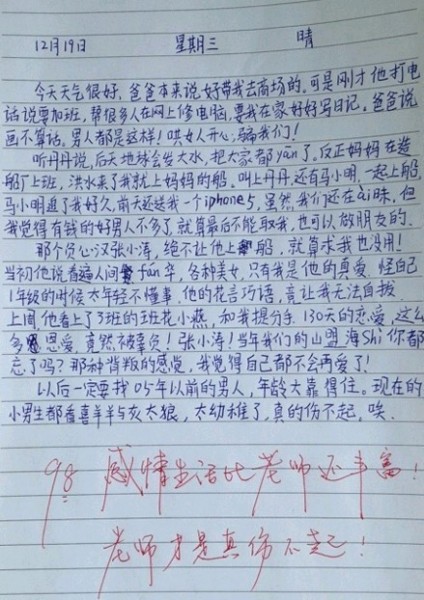 12月19日 星期三 晴
今天天气很好，爸爸本来说好带我去商场的。可是刚才他打电
话说要加班，帮很多人在网上修电脑，要我在家好好写日记。爸爸说
画不算话。男人都是这样！哄女人开心，骗我们！
听丹丹说，后天地球会发大水，把大家都yān了。反正妈妈在造
船厂上班，洪水来了我就上妈妈的船。叫上丹丹，还有马小明，一起上船，
马小明追了我好久，前天还送我一个iphone5，虽然，我们还在ài昧，但
我觉得有钱的好男人不多了，就算最后不能取我，也可以做朋友的。
那个负心汉张小涛，绝不让他上船，就算求我也没用！
当初他说看遍人间fán华，各种美女，只有我是他的真爱，怪自己
1年级的时候太年轻不懂事，他的花言巧语，竟让我无法自拔，
上周，他看上了3班的班花小燕，和我提分手，130天的恋爱，这么
多恩爱，竟然被辜负！张小涛！当年我们的山盟海Shi你都
忘了吗？那种背叛的感觉，我觉得自己都不会再爱了！
以后一定要找05年以前的男人，年龄大靠得住。现在的
小男生都看喜羊羊与灰太狼，太幼稚了，真的伤不起，唉。
98 感情生活比老师还丰富！
老师才是真伤不起！